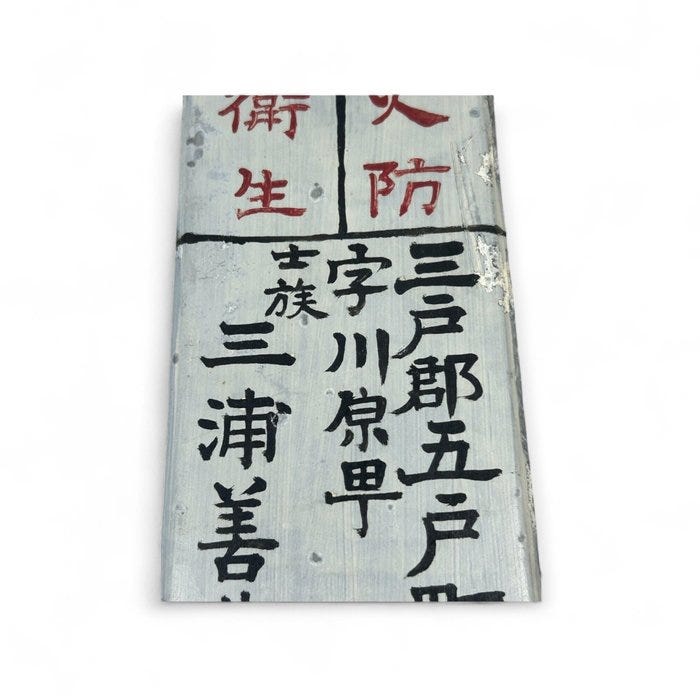 火防
衛生
三戸郡五戸町
字川原甼
士族
三浦善